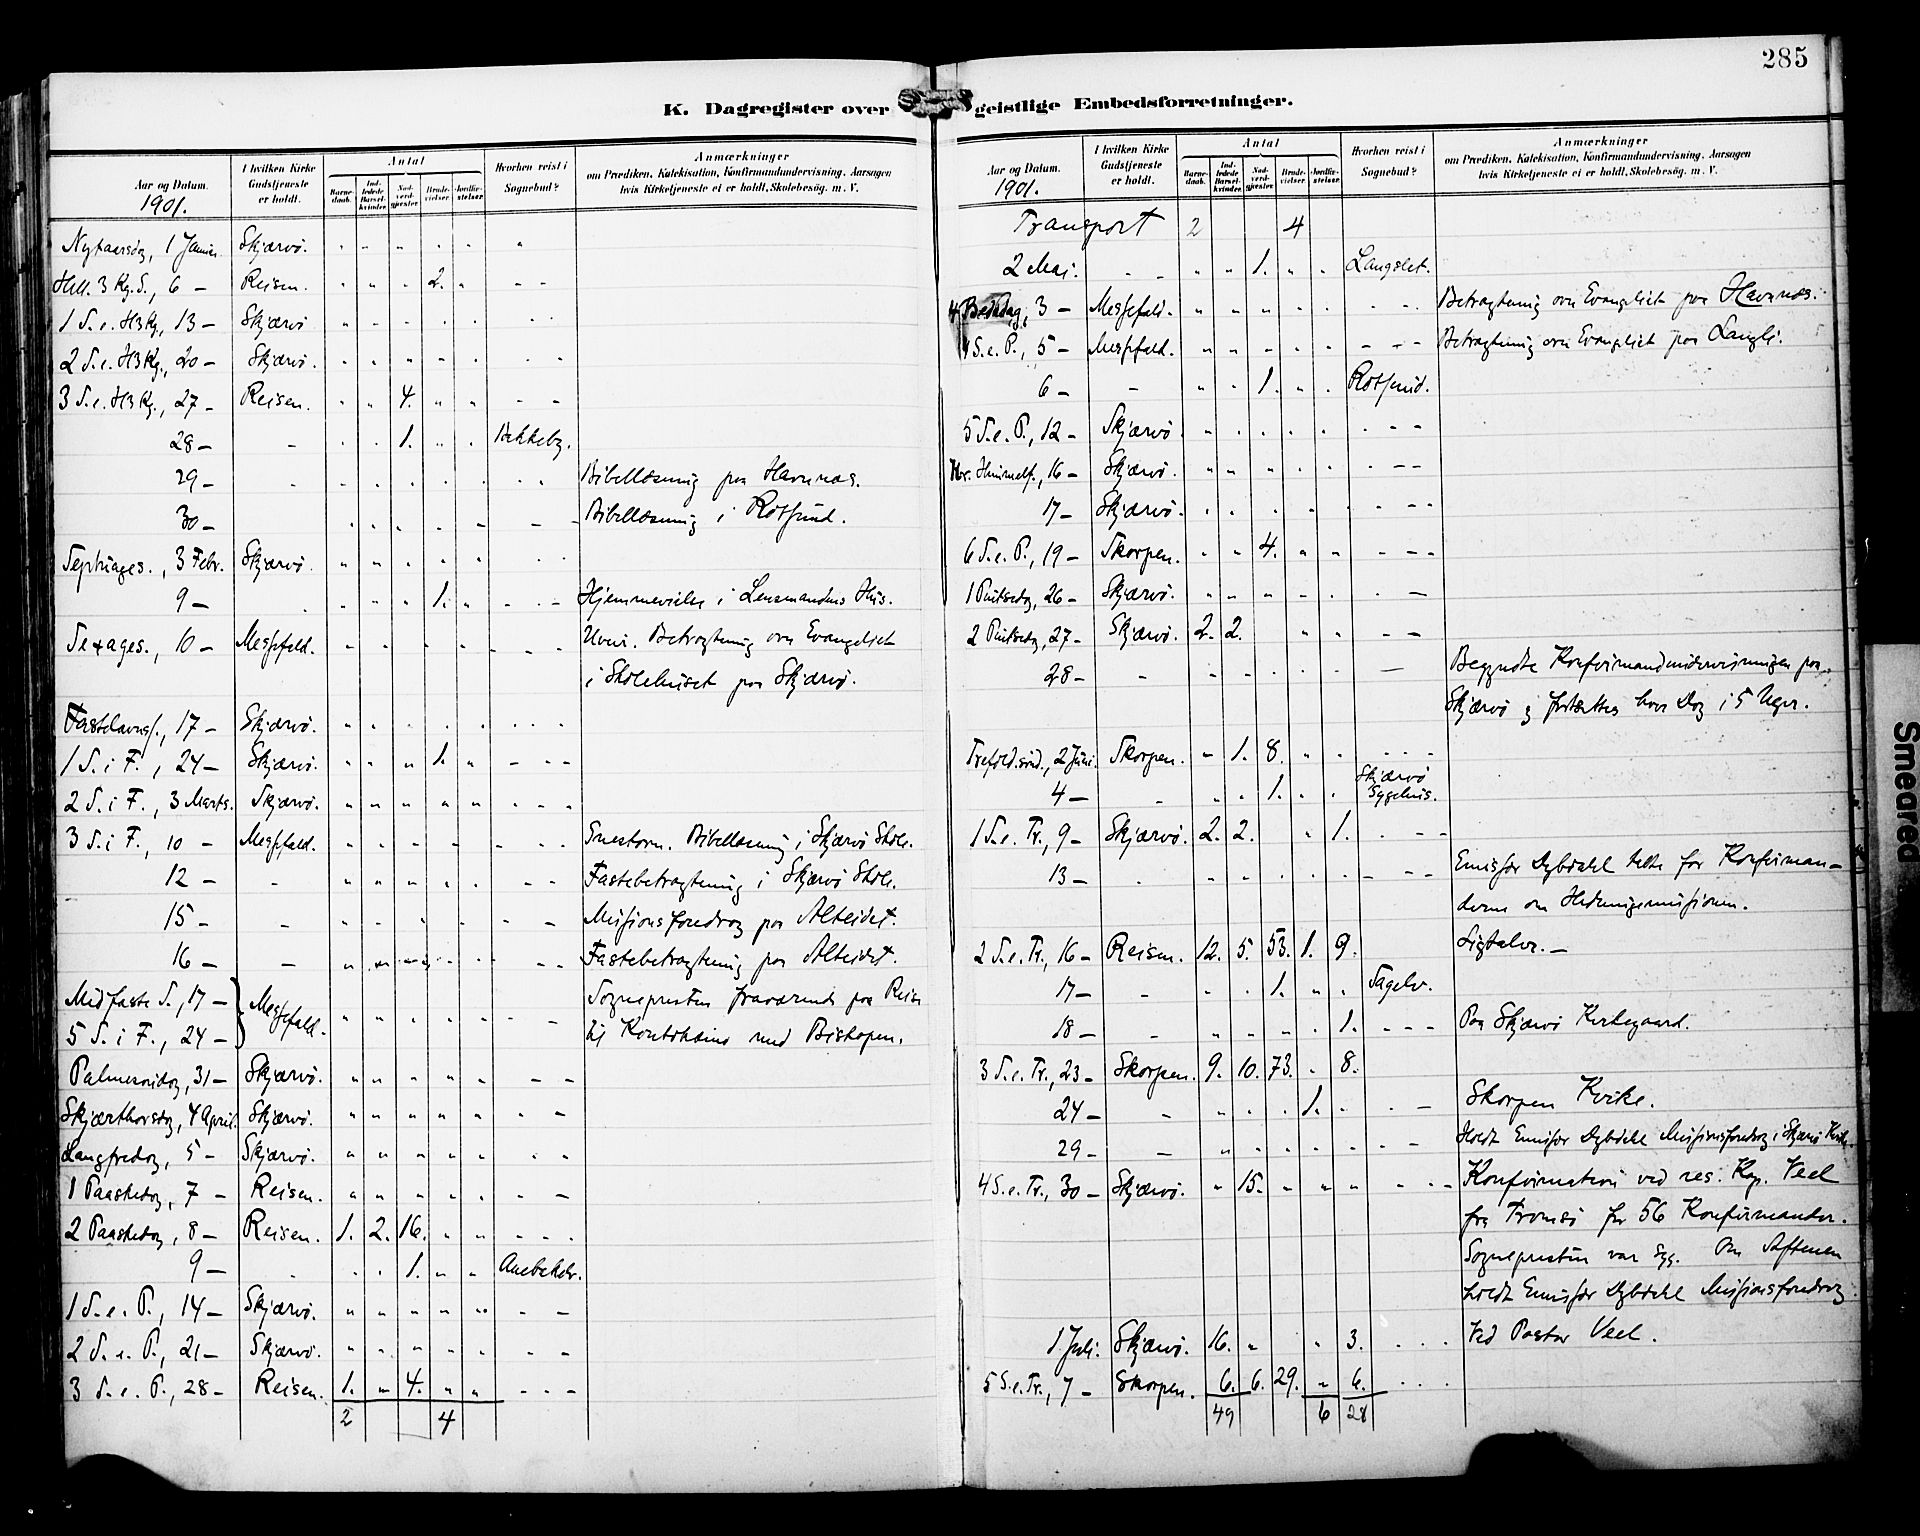 285
K. Dagregister over geistlige Embedsforretninger.
Aar og Datum. 1901. | I hvilken Kirke Gudstjeneste er holdt. | Antal | Barnedaab. | Indledede Barselkvinder. | Nadverdgjester. | Brudevielser. | Jordfæstelser. | Hvorhen reist i Sognebud? | Anmærkninger om Prædiken, Katekisation, Konfirmandundervisning, Aarsagen hvis Kirketjeneste ei er holdt, Skolebesøg. m. V.
Nytaarsdag, 1 Januar Skjærvö. " " " " " "
Hell. 3 Kg. D., 6 — Reisen. " " " 2. " " "
1 S. e. H3Kg, 13 — Skjærvö " " " " " " "
2 S. e. H3Kg., 20 — Skjærvö. " " " " " " "
3 S. e. H3Kg., 27 — Reisen. " " 4. " " " "
28 — " " " 1. " " Bakkeby.
29 — " " " " " " " " Bibellæsning paa Havnnæs.
30 — " " " " " — — Bibellæsning i Rotsund.
Septuages., 3 Febr. Skjærvö. " " " " " " "
9 — " " " " 1. " " " — Hjemmevielse i Lensmandens Hus.
Sexages., 10 — Messefald. " " " " " " " " Uveir. Betragtning over Evangeliet
i Skolehuset paa Skjærvö.
Fastelavnss., 17 — Skjærvö. " " " " " " "
1 S. i F., 24 — Skjærvö. " " " 1. " " — "
2 S. i F., 3 Marts. Skjærvö. " " " " " " " "
3 S. i F., 10 — Messefald. " " " " " " " " Snestorm. Bibellæsning i Skjærvö Skole.
12 — " " " " " " " " Fastebetragtning i Skjærvö Skole.
15 — — " " " " " " " Missionsforedrag paa Alteidet.
16 — — " " " " " " " Fastebetragtning paa Alteidet.
Midfaste S., 17 — } Messefald. " " " " " " " " Sognepresten fraværende paa Reise
5 S. i F., 24 — til Koutokæino med Biskopen.
Palmesöndag, 31 — Skjærvö. " " " " " — —
Skjærthorsdag, 4 April. Skjærvö. " " " " " " —
Langfredag, 5 — Skjærvö. " " " " " " "
1 Paaskedag, 7 — Reisen. " " " " " " —
2 Paaskedag, 8 — Reisen. 1. 2. 16. " " " " "
9 — " " " 1. " "
1 S. e. P., 14 — Skjærvö. " " " " " " —
2 S. e. P., 21 — Skjærvö. " " " " " " —
3 S. e. P., 28 — Reisen. 1. " 4. " " " " "
2 4
Aar og Datum. 1901. | I hvilken Kirke Gudstjeneste er holdt. | Antal | Barnedaab. | Indledede Barselkvinder. | Nadverdgjester. | Brudevielser. | Jordfæstelser. | Hvorhen reist i Sognebud? | Anmærkninger om Prædiken, Katekisation, Konfirmandundervisning, Aarsagen hvis Kirketjeneste ei er holdt, Skolebesøg. m. V.
Transport 2 4
2 Mai. " " " " 1. " " Langslet.
4 Bededag, 3 — Messefald. " " " " " " " Betragtning over Evangeliet paa Havnnæs.
4 S. e. P., 5 — Messefald. " " " " " " " " Betragtning over Evangeliet paa Langli.
6 — — " " 1. " " Rotsund.
5 S. e. P., 12 — Skjærvö. " " " " " " — —
Kr. Himmelf., 16 — Skjærvö. " " " " " " — —
17 — Skjærvö. " " " " " " — —
6 S. e. P., 19 — Skorpen. " " 4. " " " — —
1 Pintsedag, 26 — Skjærvö. " " " " " " —
2 Pintsedag, 27 — Skjærvö. 2. 2. " " — —
28 — " " " " " " — Begyndte Konfirmandundervisningen paa
Skjærvö og fortsættes hver Dag i 5 Uger.
Trefold.sönd., 2 Juni. Skorpen. " 1. 8. " " " " "
4 — " " " 1. " " Skjærvö Sygehus.
1 S. e. Tr., 9 — Skjærvö. 2. 2. " 1. " — —
13 — " " " " " " " — — Emissær Dybdahl talte for Konfirman-
derne om Hedningemissionen.
2 S. e. Tr., 16 — Reisen. 12. 5. 53. 1. 9. Ligtaler. —
17 — " " " 1. " " Sagelv.
18 — " " " " " 1. " — — Paa Skjærvö Kirkegaard.
3 S. e. Tr., 23 — Skorpen. 9. 10. 73. " 8.
24 — — " " " 1. " " — Skorpen Kirke.
29 — — " " " " " " — Holdt Emissær Dybdahl Missionsforedrag i Skjærvö Kirke.
4 S. e. Tr., 30 — Skjærvö. " 15. " " " " — — Konfirmation ved res. Kap. Veel
fra Tromsö for 56 Konfirmander.
Sognepresten var syg. Om Aftenen
holdt Emissær Dybdahl Missionsforedrag.
1 Juli. Skjærvö. 16. " " 3. " " " Ved Pastor Veel.
5 S. e. Tr., 7 — Skorpen. 6. 6. 29. " 6. " " "
49 6 28
Smeared